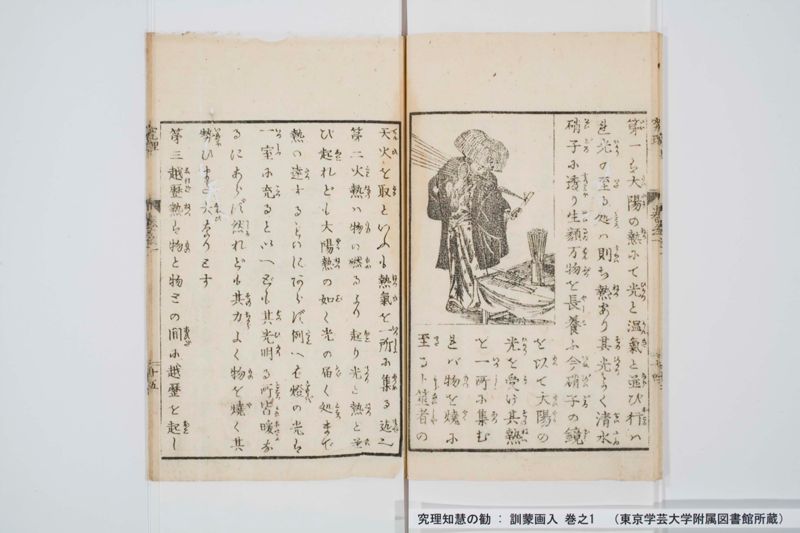 第一ハ大陽の熱にて光と温氣と並び行ハ
れ光の至る処ハ則ち熱あり其光よく清水
硝子に透り生類万物を長養ふ今硝子の鏡
を以て大陽の
光を受け其熱
を一所に集む
れバ物を燒に
至る卜筮者の
天火を取といふも熱氣を一所に集る故也
第二火熱ハ物の燃るより起り光と熱と並
び起れども大陽熱の如く光の届く処まで
熱の達するといふにあらず例へば燈の光は
一室に充ると以へども其光明る所皆暖な
るにあらず然れども其力よく物を燒く其
勢ひまた大なりとす
第三越歴熱ハ物と物との間に越歴を起し
究理知慧の勧 : 訓蒙画入 巻之1 （東京学芸大学附属図書館所蔵）